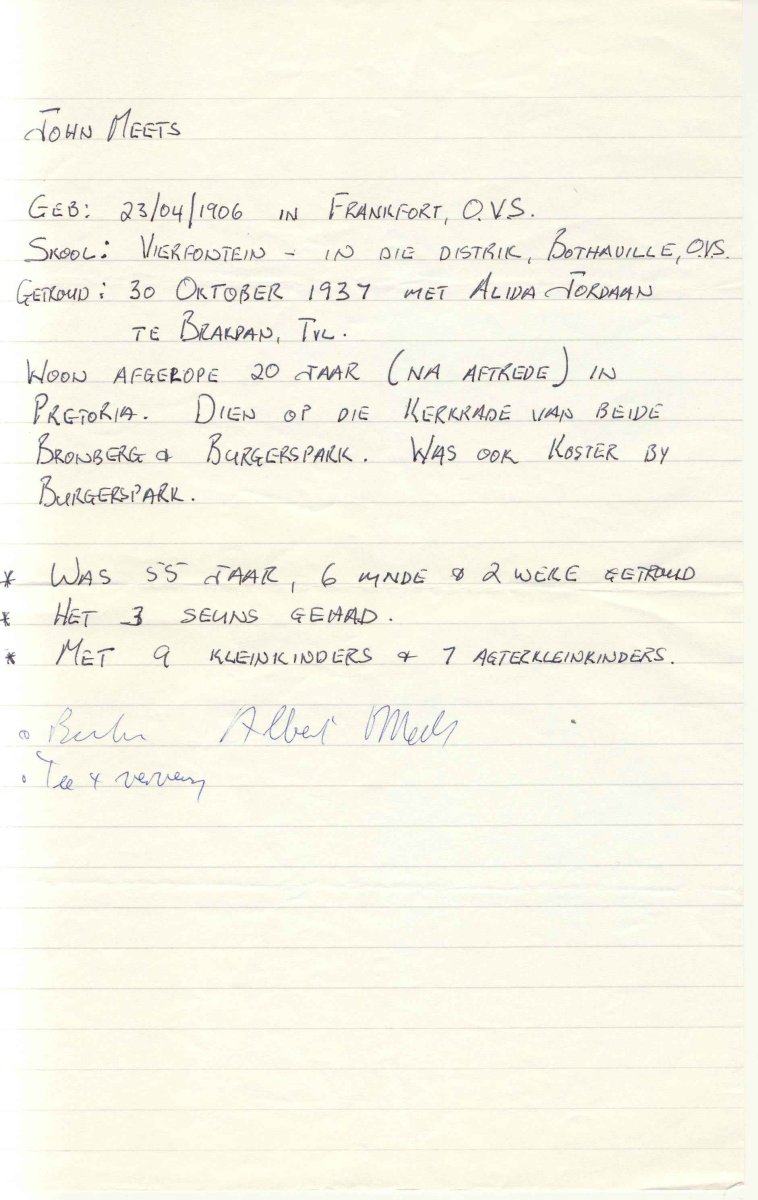 JOHN MEETS
GEB: 23/04/1906 IN FRANKFORT, O.V.S.
SKOOL: VIERFONTEIN - IN DIE DISTRIK, BOTHAVILLE, O.V.S.
GETROUD: 30 OKTOBER 1937 MET ALIDA JORDAAN
TE BRAKPAN, TVL.
WOON AFGELOPE 20 JAAR (NA AFTREDE) IN
PRETORIA. DIEN OP DIE KERKRADE VAN BEIDE
BRONBERG & BURGERSPARK. WAS OOK KOSTER BY
BURGERSPARK.
* WAS 55 JAAR, 6 MNDE & 2 WEKE GETROUD
* HET 3 SEUNS GEHAD.
* MET 9 KLEINKINDERS & 7 AGTERKLEINKINDERS.
Albert
Tee &